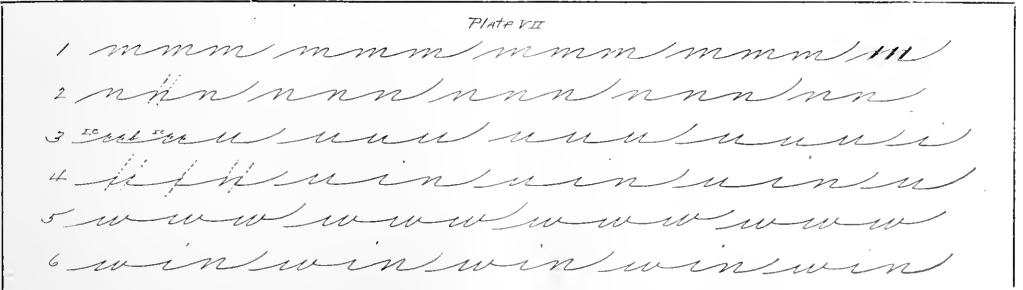 Plate VII
1 mmm mmm mmm mmm m
2 nnn nnn nnn nnn nn
3 uu uuu uuu uuu i
4 u i n u i n u i n u i n u
5 www www www www
6 win win win win win